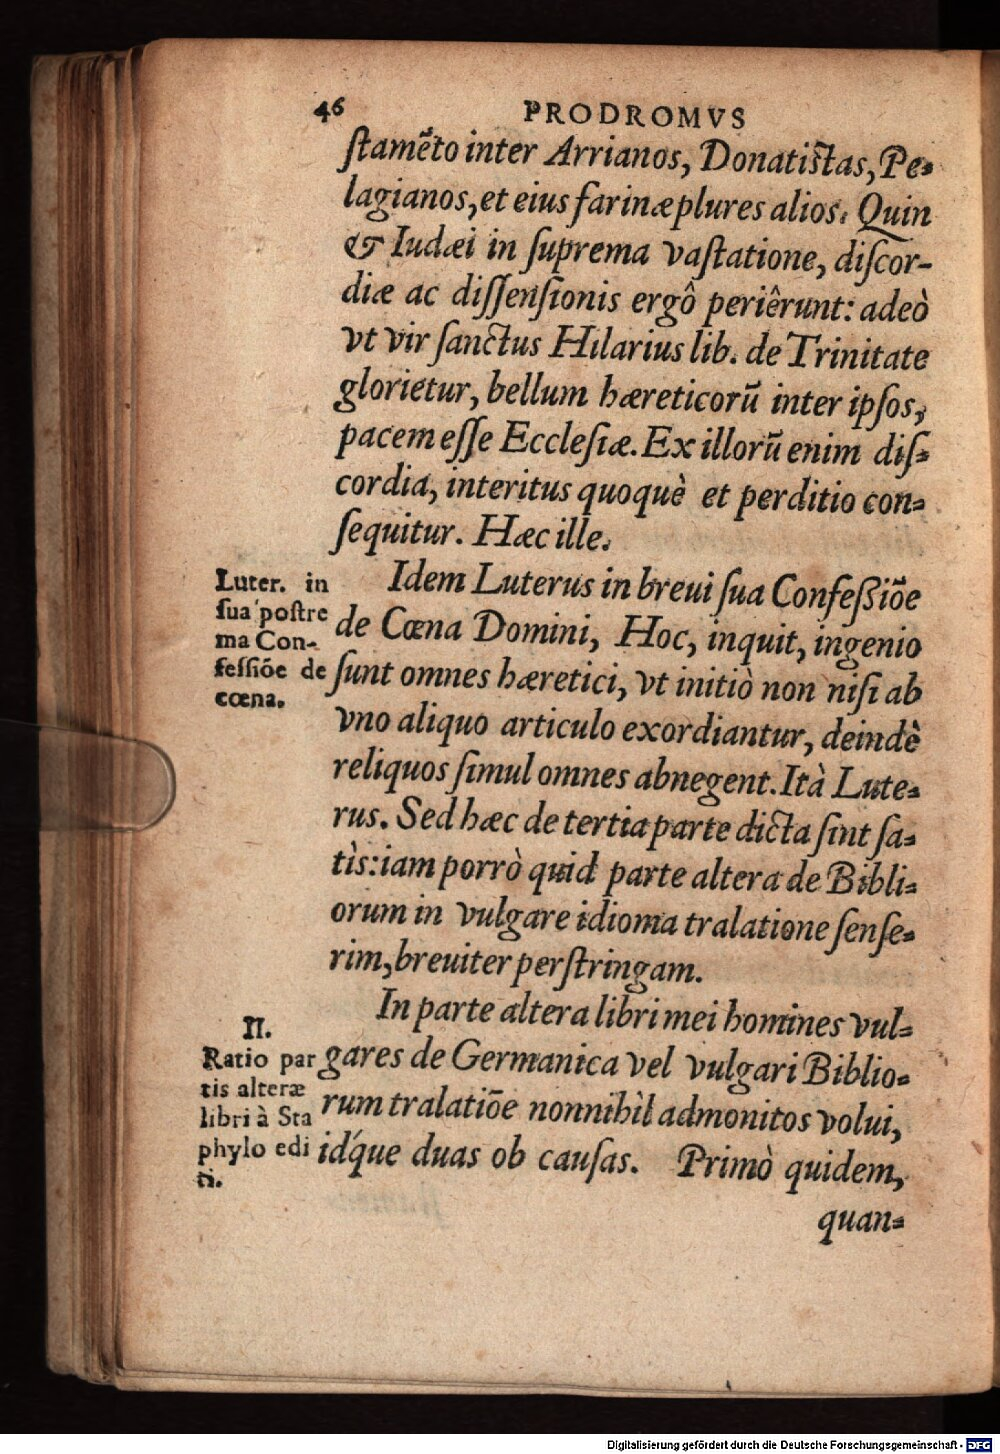 46 PRODROMVS
ſtamẽto inter Arrianos, Donatiſtas, Pe-
lagianos, et eius farinæ plures alios. Quin
& Iudæi in ſuprema vaſtatione, diſcor-
diæ ac diſſenſionis ergô periêrunt: adeò
vt vir ſanctus Hilarius lib. de Trinitate
glorietur, bellum hæreticorũ inter ipſos,
pacem eſſe Eccleſiæ. Ex illorũ enim diſ-
cordia, interitus quoquè et perditio con-
ſequitur. Hæc ille.
Luter. in
ſua poſtre
ma Con-
feſſiõe de
cœna.
Idem Luterus in breui ſua Confeßiõe
de Cœna Domini, Hoc, inquit, ingenio
ſunt omnes hæretici, vt initiò non niſi ab
vno aliquo articulo exordiantur, deindè
reliquos ſimul omnes abnegent. Ità Lute-
rus. Sed hæc de tertia parte dicta ſint ſa-
tìs: iam porrò quid parte altera de Bibli-
orum in vulgare idioma tralatione ſenſe-
rim, breuiter perſtringam.
II.
Ratio par
tis alteræ
libri à Sta
phylo edi
ti.
In parte altera libri mei homines vul-
gares de Germanica vel vulgari Biblio-
rum tralatiõe nonnihìl admonitos volui,
idq́ue duas ob cauſas. Primò quidem,
quan-
Digitalisierung gefördert durch die Deutsche Forschungsgemeinschaft - DFG